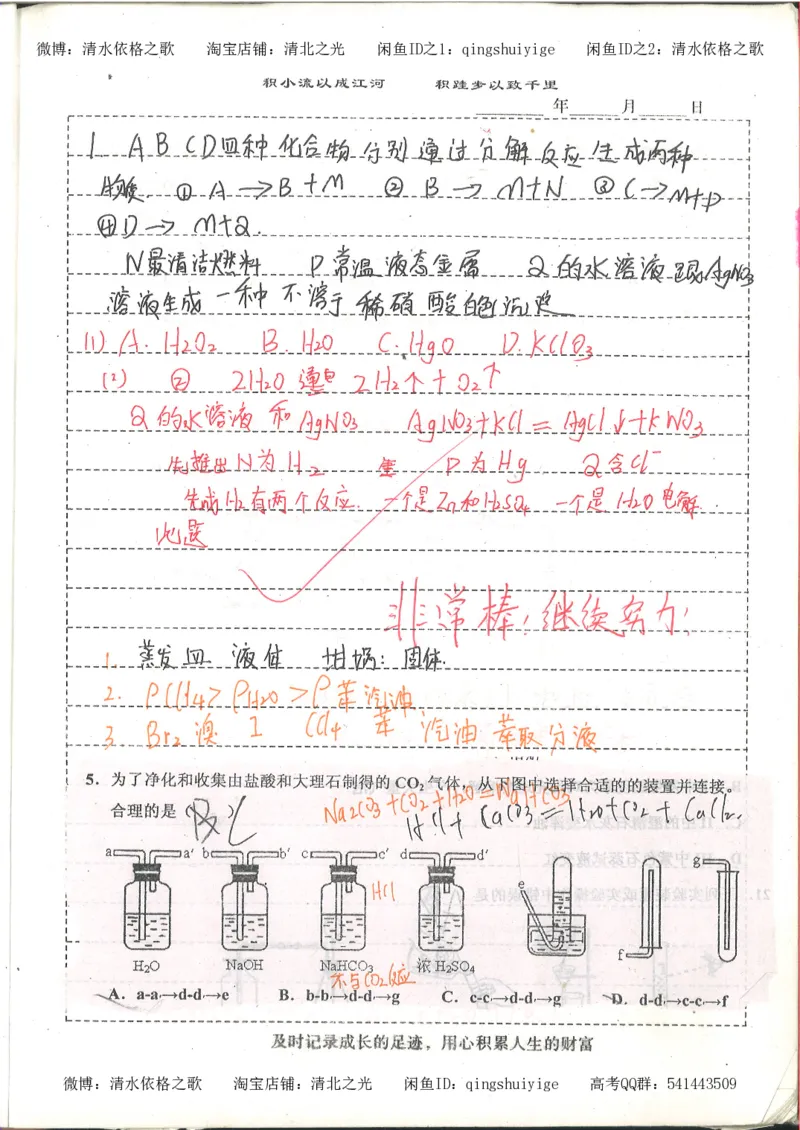 微博：清水依格之歌　　淘宝店铺：清北之光　　闲鱼ID之1：qingshuiyige　　闲鱼ID之2：清水依格之歌
积小流以成江河　　积跬步以致千里
年　　月　　日
1. A B C D四种化合物分别通过分解反应生成两种
物质. ① A→B+M ② B→M+N ③ C→M+P
④D→M+Q.
N最清洁燃料 P常温液态金属 Q的水溶液跟AgNO3
溶液生成一种不溶于稀硝酸白色沉淀
(1) A. H2O2 B. H2O C. HgO D. KClO3
(2) ② 2H2O 通电 2H2↑+O2↑
Q的水溶液和AgNO3 AgNO3+KCl=AgCl↓+KNO3
先推出N为H2 P为Hg Q含Cl-
生成H2有两个反应. 一个是Zn和H2SO4 一个是H2O电解.
此题
非常棒！继续努力！
1. 蒸发皿 液体 坩埚：固体.
2. ρCCl4>ρH2O>ρ苯汽油
3. Br2溴 I CCl4 苯 汽油 萃取分液
5. 为了净化和收集由盐酸和大理石制得的 CO2 气体，从下图中选择合适的的装置并连接。
合理的是（　　）
Na2CO3+CO2+H2O=NaHCO3
HCl+CaCO3=H2O+CO2+CaCl2.
a a′ b b′ c c′ d d′ g
e
HCl
f
H2O NaOH NaHCO3 浓 H2SO4
不与CO2反应
A. a-a′→d-d′→e B. b-b′→d-d′→g C. c-c′→d-d′→g D. d-d′→c-c′→f
及时记录成长的足迹，用心积累人生的财富
微博：清水依格之歌　　淘宝店铺：清北之光　　闲鱼ID：qingshuiyige　　高考QQ群：541443509